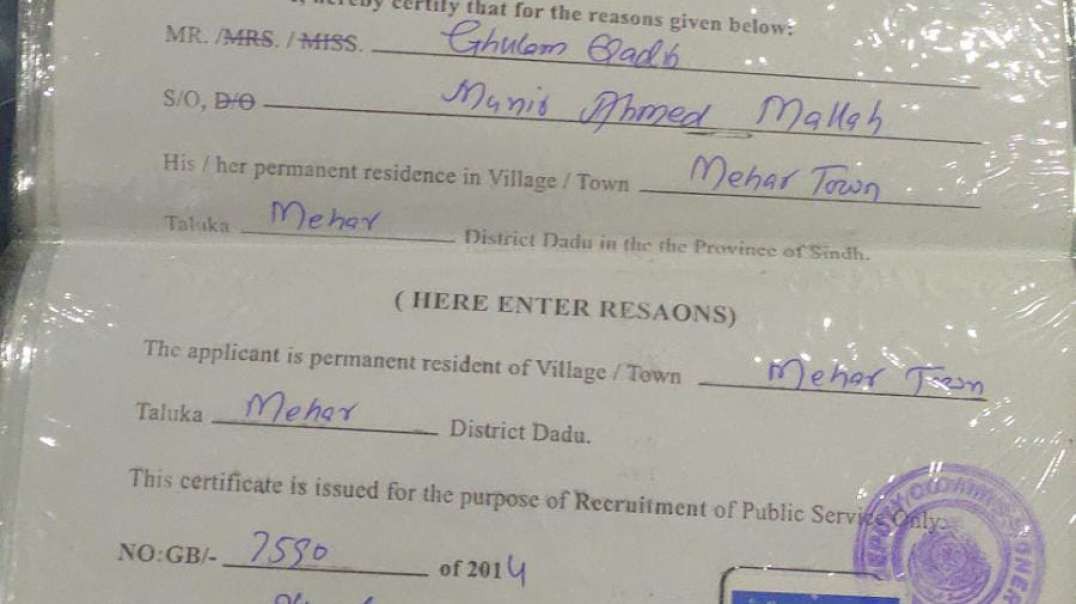 hereby certify that for the reasons given below:
MR. /MRS. / MISS. Ghulam Qadir
S/O, D/O Munir Ahmed Mallah
His / her permanent residence in Village / Town Mehar Town
Taluka Mehar District Dadu in the the Province of Sindh.
( HERE ENTER RESAONS)
The applicant is permanent resident of Village / Town Mehar Town
Taluka Mehar District Dadu.
This certificate is issued for the purpose of Recruitment of Public Service Only.
NO:GB/- 7590 of 2014